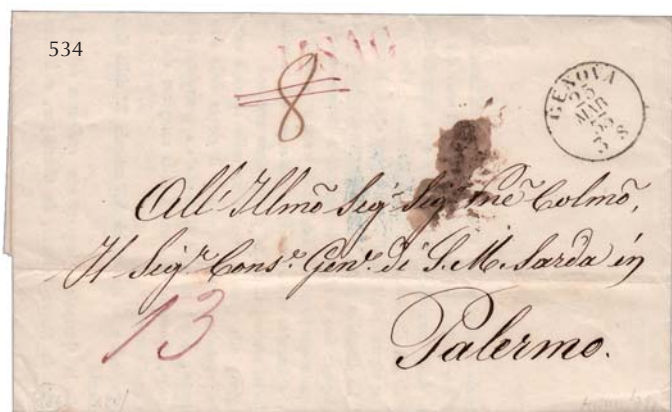 534
8
GENOVA
25
MAR
55
3 S
All' Illmõ Sigʳ Sigʳ mẽ Colmõ,
Il Sigʳ Consᵉ Genᵉ di S. M. Sarda in
13
Palermo.